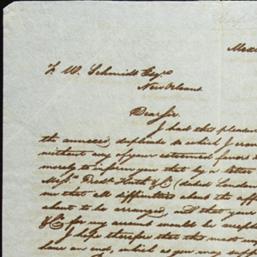 Mex
F. W. Schmidt Esqre
New Orleans
Dear Sir.
I had this pleasure
the annexed duplicate to which I
without any of your esteemed favors
merely to inform you that by a letter
Messrs. & Co (dated London
me that all difficulties about the
about to be arranged, and that your
&c for my account would be
I hope therefore that this
have an end, which as you may